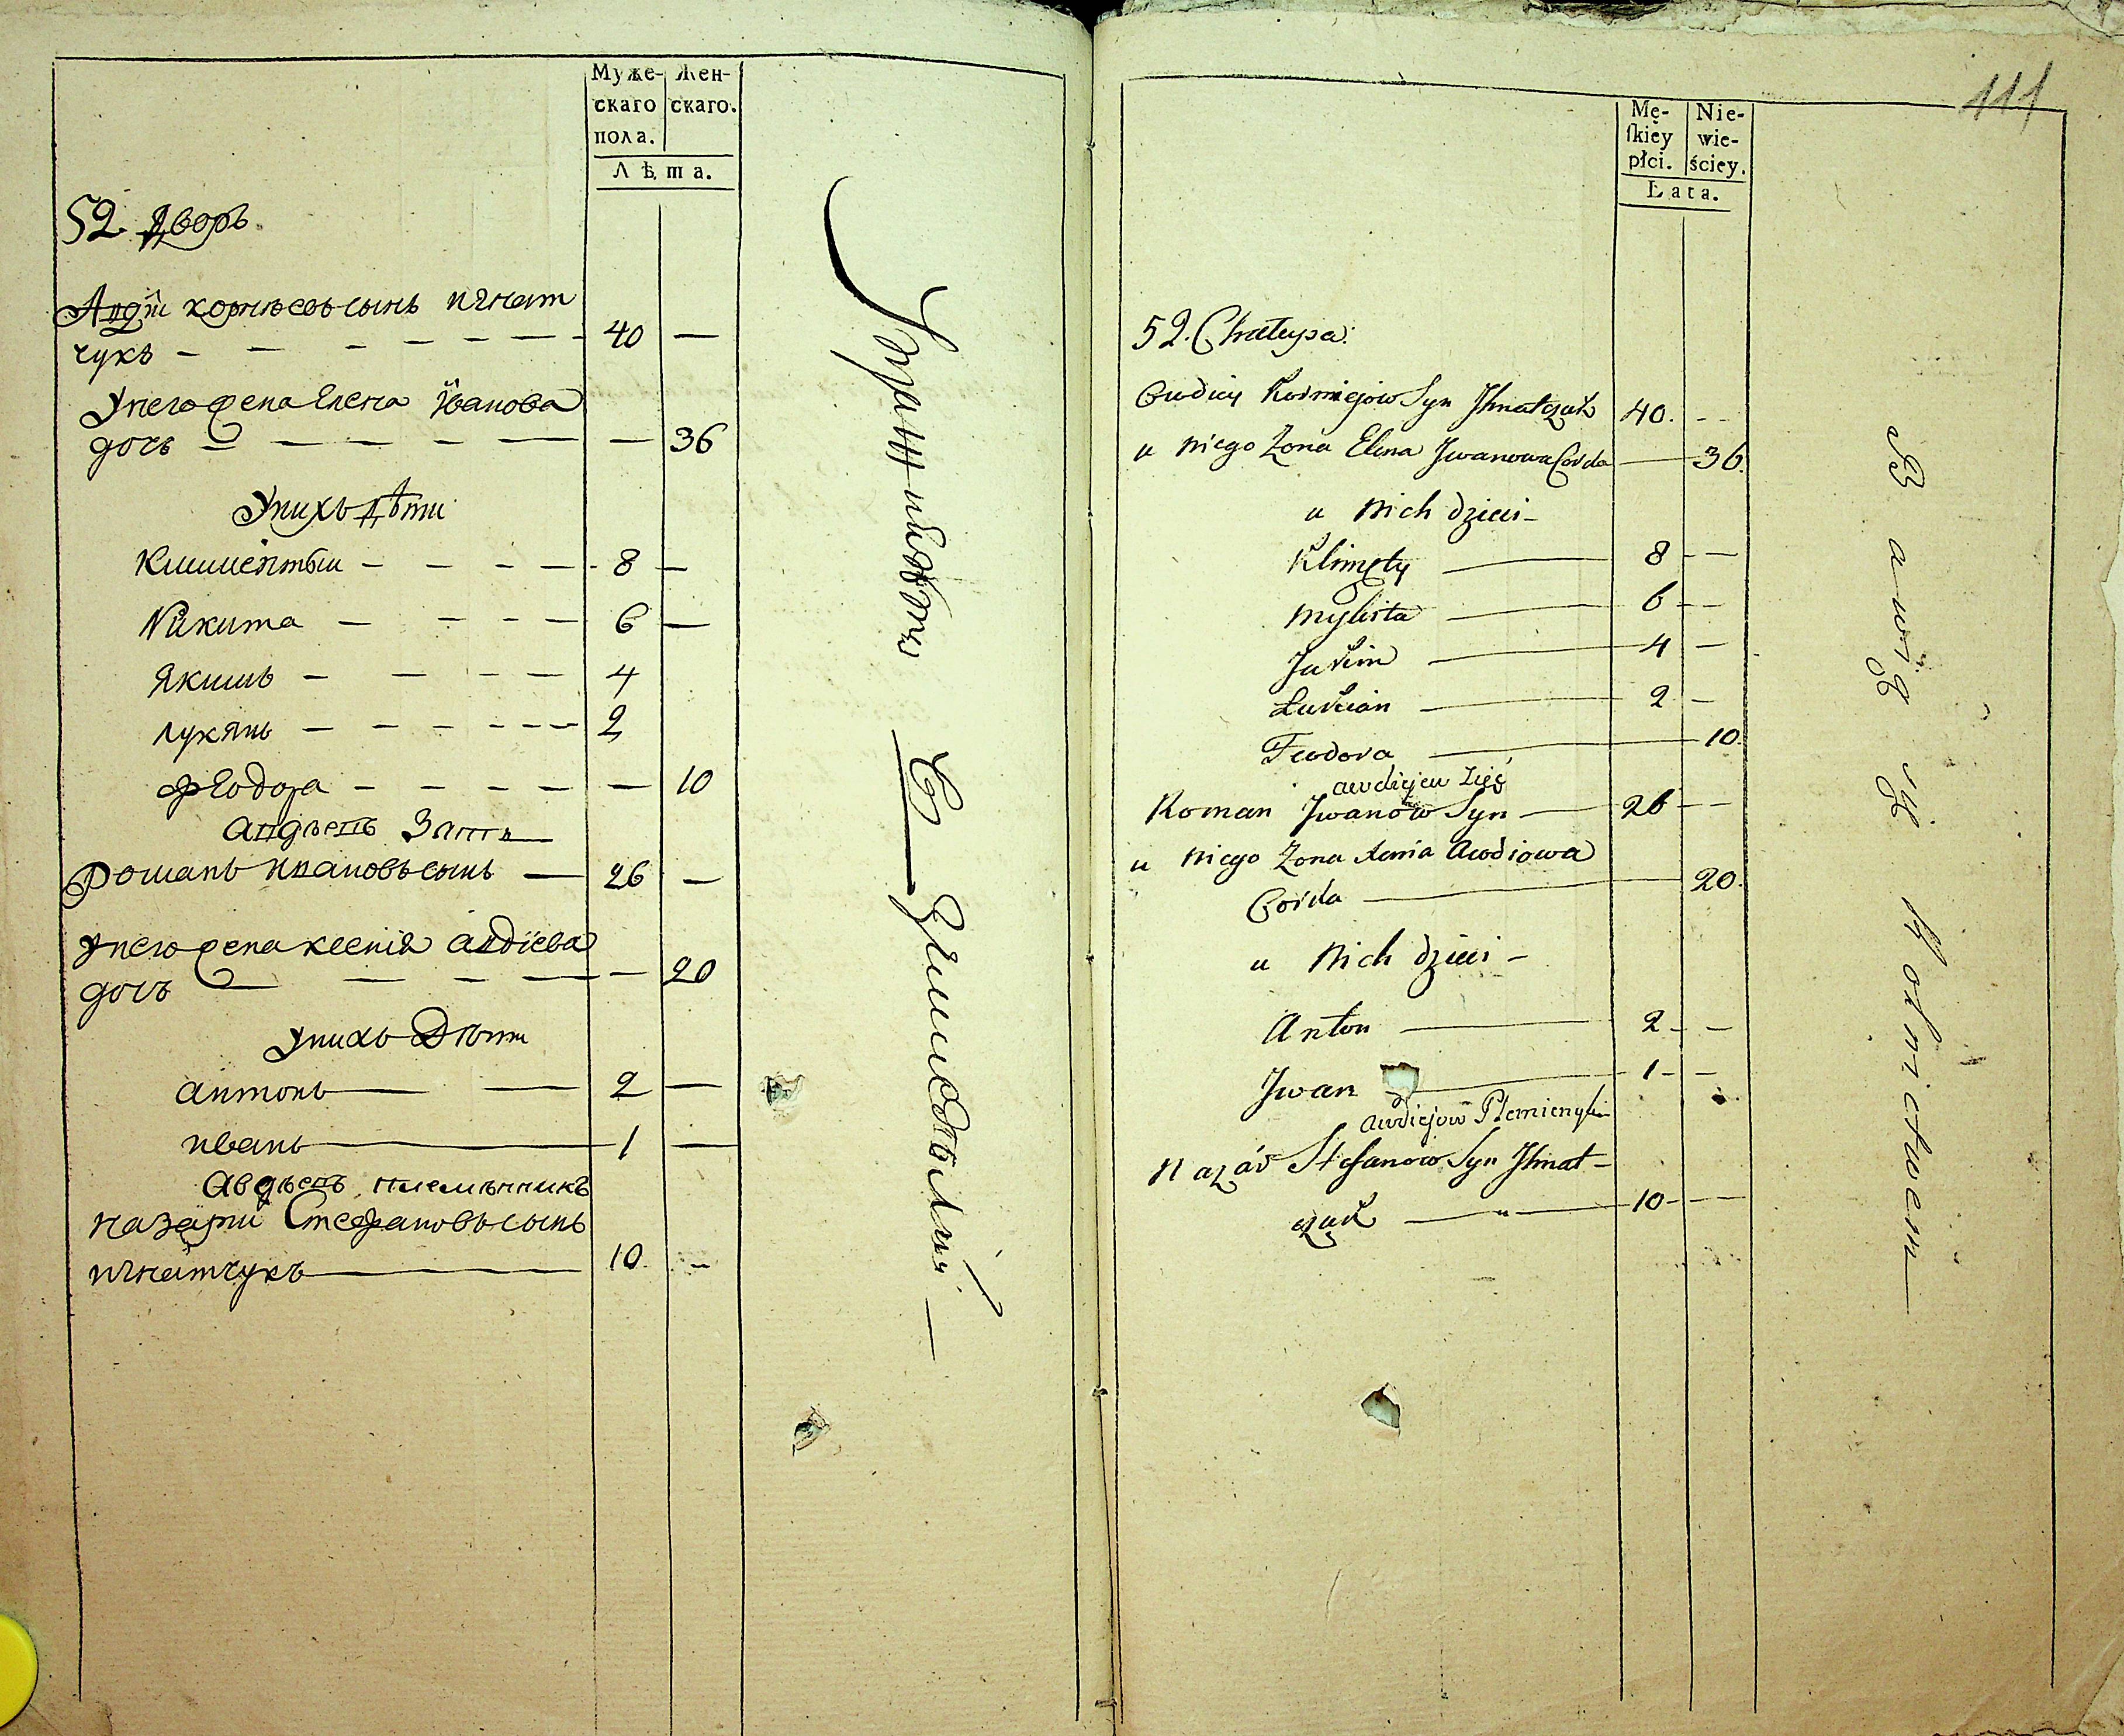 Муже-
скаго
пола.
Жен-
скаго.
Лѣта.
52 Дворъ
Авдій корнѣевъ сынъ игнат
чукъ - - - - - - - 40 —
У него жена Елена Іванова
дочь - - - - - — 36
У нихъ дѣти
Климентый - - - - - 8 —
Никита - - - - - 6 —
Якимъ - - - - 4
Лукянъ - - - - - - 2
Феодора - - - - - — 10
Авдѣевъ Зять
Романъ Ивановъ сынъ — 26 —
У него жена ксенія авдіева
дочь - - - - - — 20
У нихъ Дѣти
антонъ — — 2 —
иванъ — 1 —
Авдѣевъ племѣнникъ
назарій Стефановъ сынъ
игнатчукъ — 10. -
Пропитаніе
Имеетъ
Земледѣліи —
111
Mę-
ſkiey
płci.
Nie-
wie-
ściey.
Lata.
52. Chałupa.
Audiey Korniejow Syn Jhnatczuk 40. - -
u niego Żona Elena Jwanowa Corka — 36.
u nich dzieci -
Klimęty — 8 - —
Mykita — 6 - -
Jakim — 4 —
Łukian — 2 -
Teodora — 10.
awdiejew Zięć
Roman Jwanow Syn — 26 - -
u niego Żona Xenia Awdiowa
Corka — 20.
u nich dzieci -
Anton — 2 - -
Jwan — 1 - -
awdiejow Plemienyk
Nazár Stefanow Syn Jhnat-
czuk — " — 10 - —
Bawią się Rolnictwem —